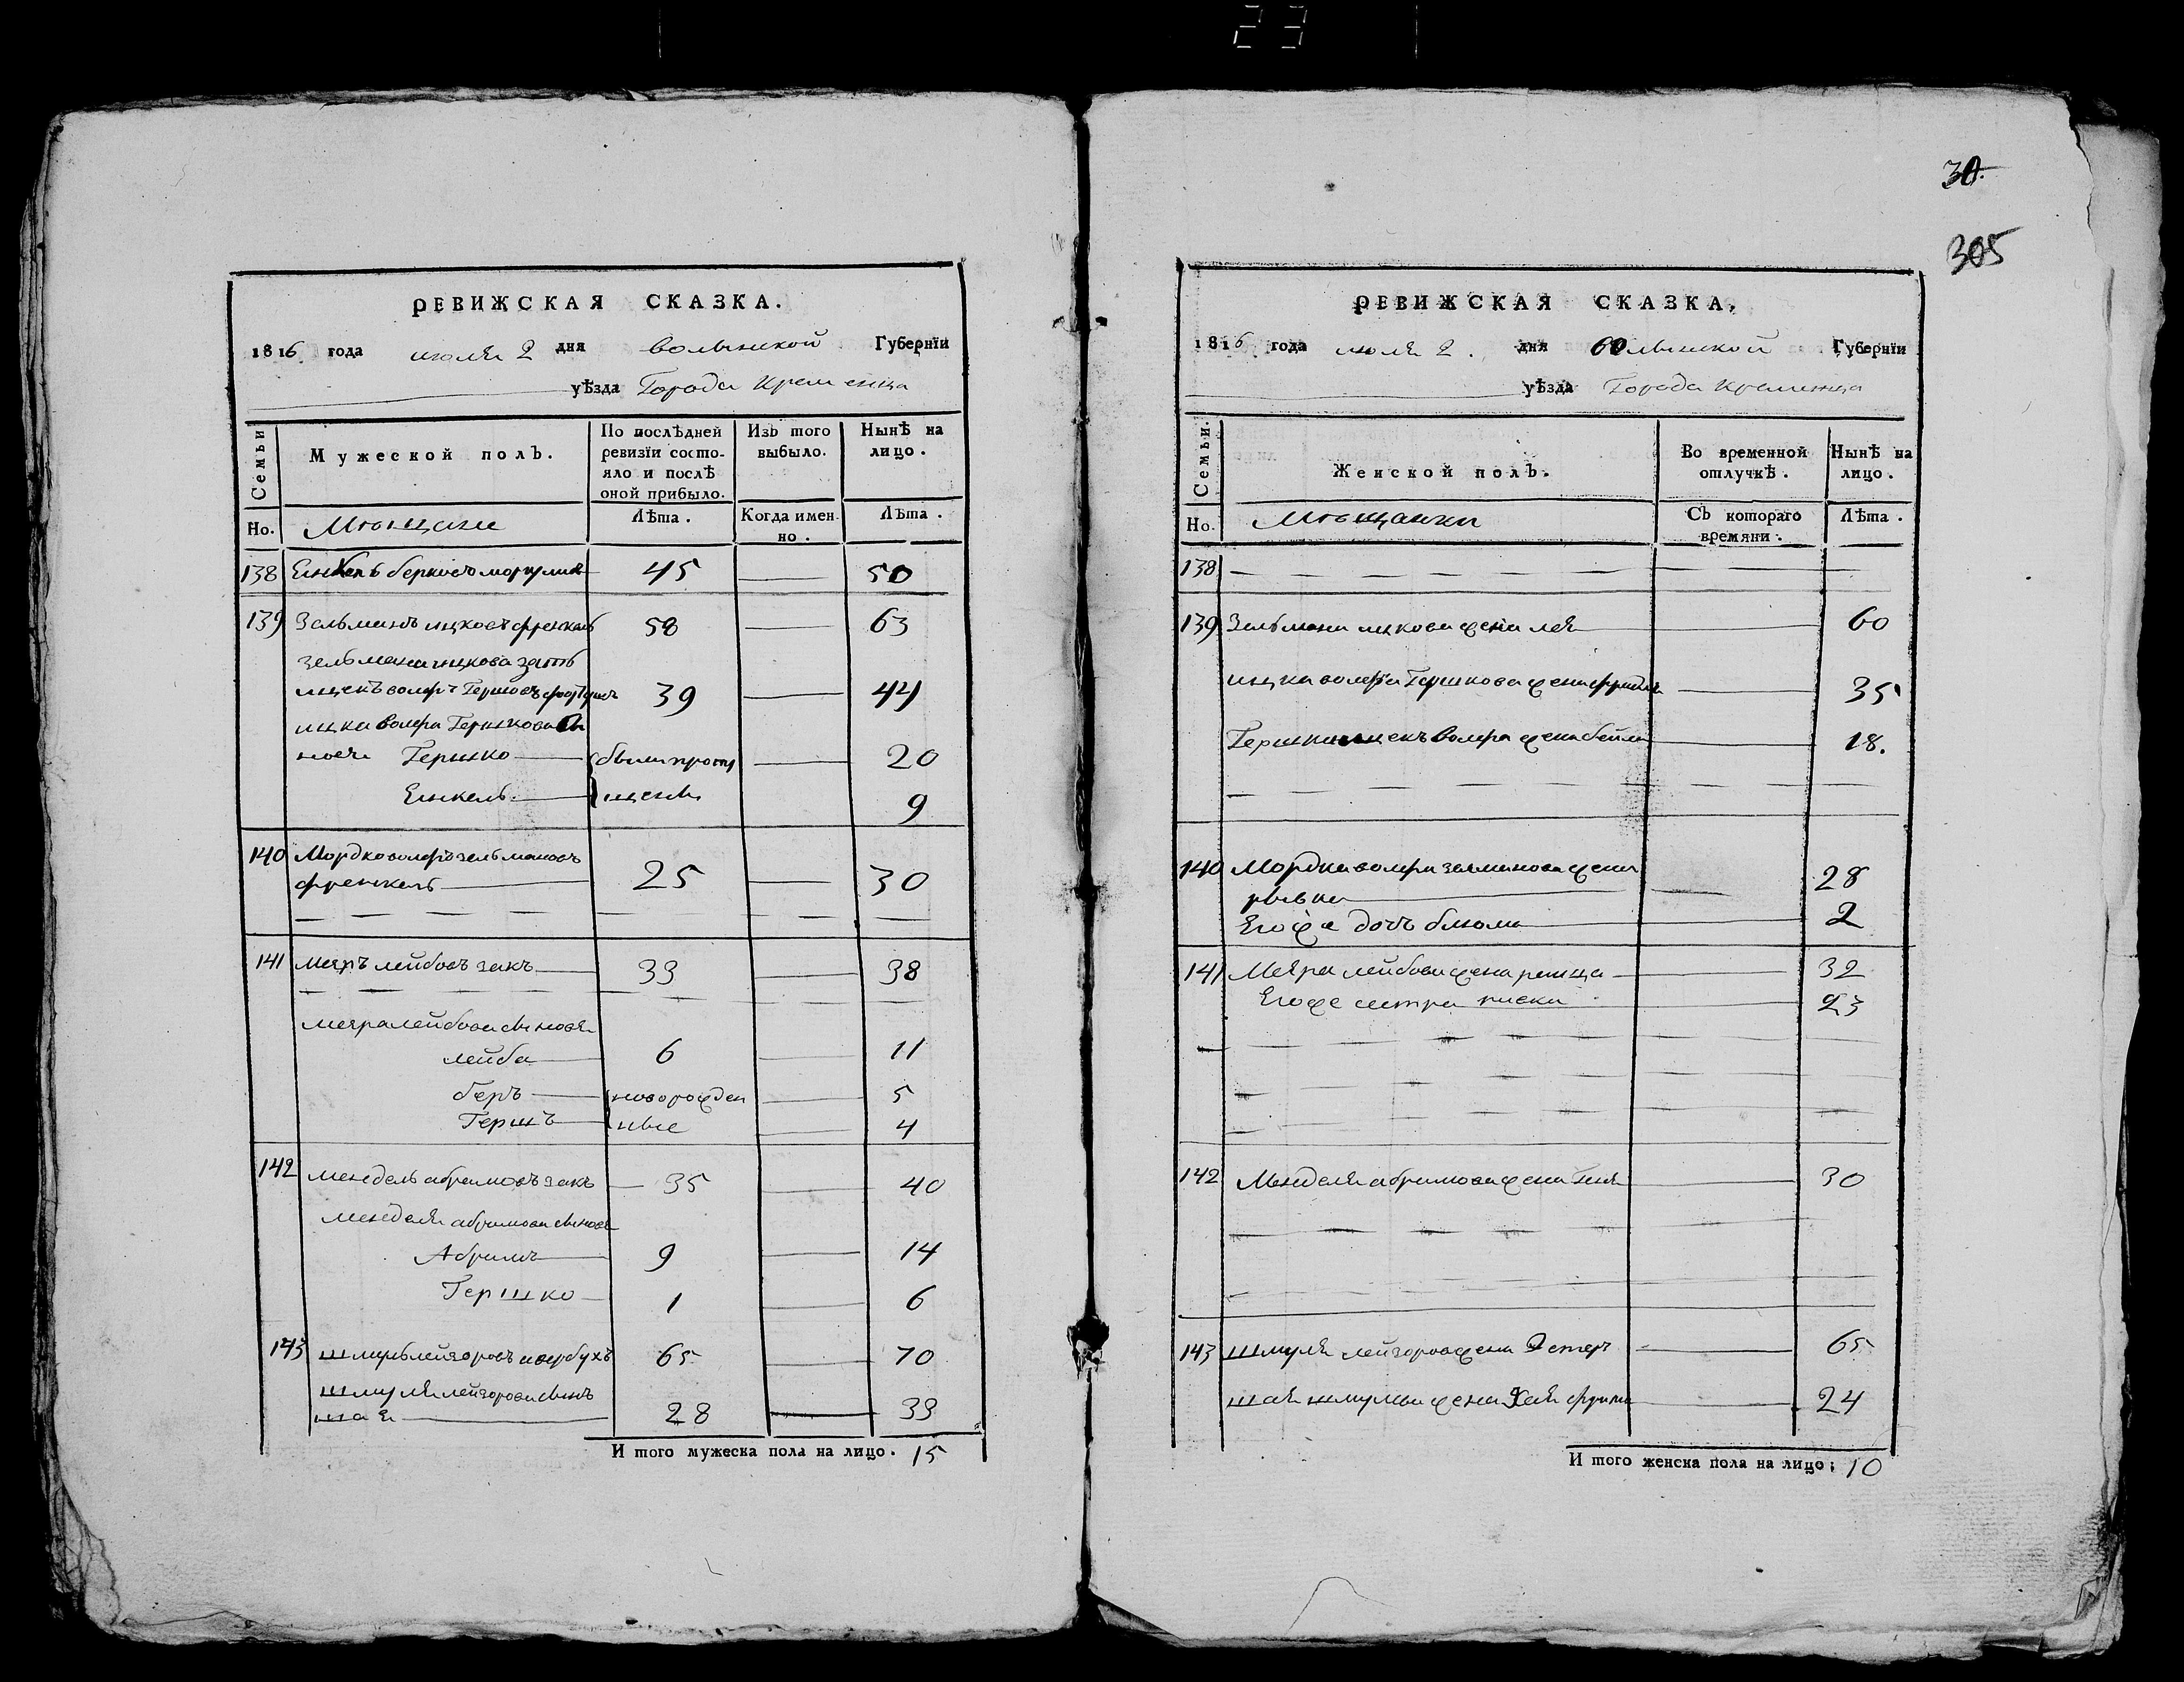 23
РЕВИЖСКАЯ СКАЗКА.
1816 года июля 2 дня волынской Губернїи
уѣзда Города Кременца
Семьи
Мужеской полъ.
По послѣдней ревизїи состояло и послѣ оной прибыло.
Изъ того выбыло.
Нынѣ на лицо.
Но. Мѣщане Лѣта. Когда именно. Лѣта.
138 Еинкель берковъ 45 50
139 Зельманъ ицковъ френкель 58 63
зельмана ицкова зять
ицекъ волфъ Гершовъ 39 44
ицка волфа Гершкова сы
новя Гершко были пропу 20
Еинкель щены 9
140 Мордко волфъ зельмановъ
френкель 25 30
141 Меяръ лейбовъ закъ 33 38
меяра лейбова сыновя
лейба 6 11
беръ новорожден 5
Гершъ ные 4
142 мендель абрамовъ закъ 35 40
менделя абрамова сыновя
Абрамъ 9 14
Гершко 1 6
143 шмуль лейзоровъ авербухъ 65 70
шмуля лейзорова сынъ
шая 28 33
И того мужеска пола на лицо. 15
30.
305
РЕВИЖСКАЯ СКАЗКА.
1816 года июля 2. дня волынской Губернїи
уѣзда Города Кременца
Семьи.
Женской полъ.
Во временной отлучкѣ.
Нынѣ на лицо.
Но. Мѣщанки Съ котораго времяни. Лѣта.
138
139 Зельмана ицкова жена лея 60
ицка волфа Гершкова жена 35
Гершка ицекъ волфа жена бейла 18.
140 Мордка волфа зелманова жена
рывка 28
Его же дочь блюма 2
141 Меяра лейбова жена 32
Его же сестра 23
142 Менделя абрамова жена Геня 30
143 шмуля лейзорова жена Эстеръ 65
шая шмулева жена Хая 24
И того женска пола на лицо: 10